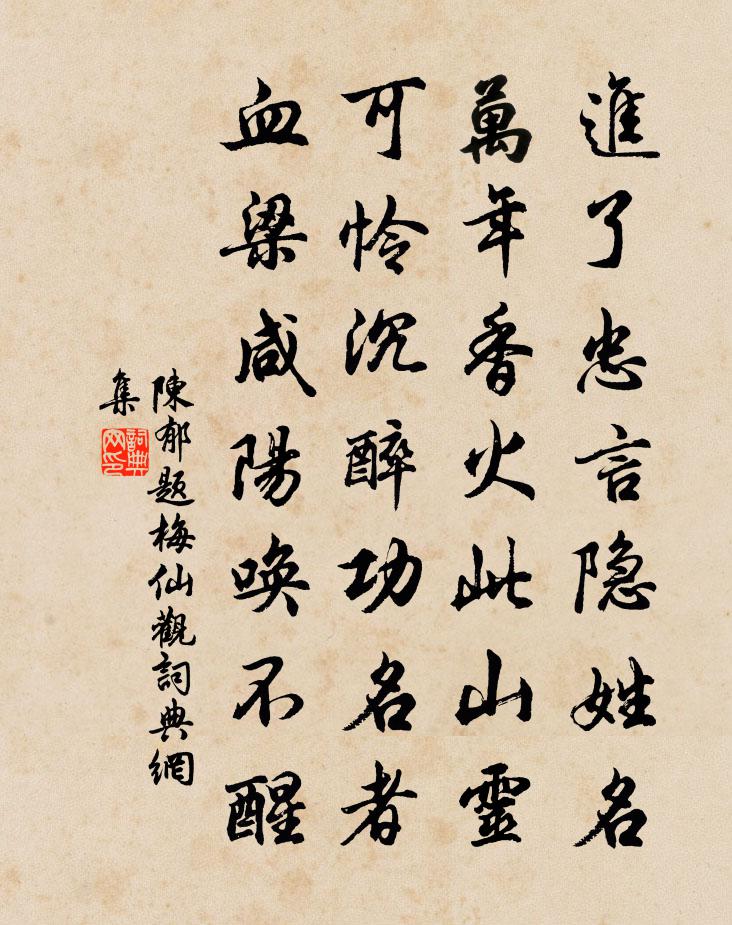 進了忠言隐姓名
萬年香火此山靈
可怜沉醉功名者
血梁咸陽唤不醒
陳郁題梅仙觀詞典網
集
詞典
网印